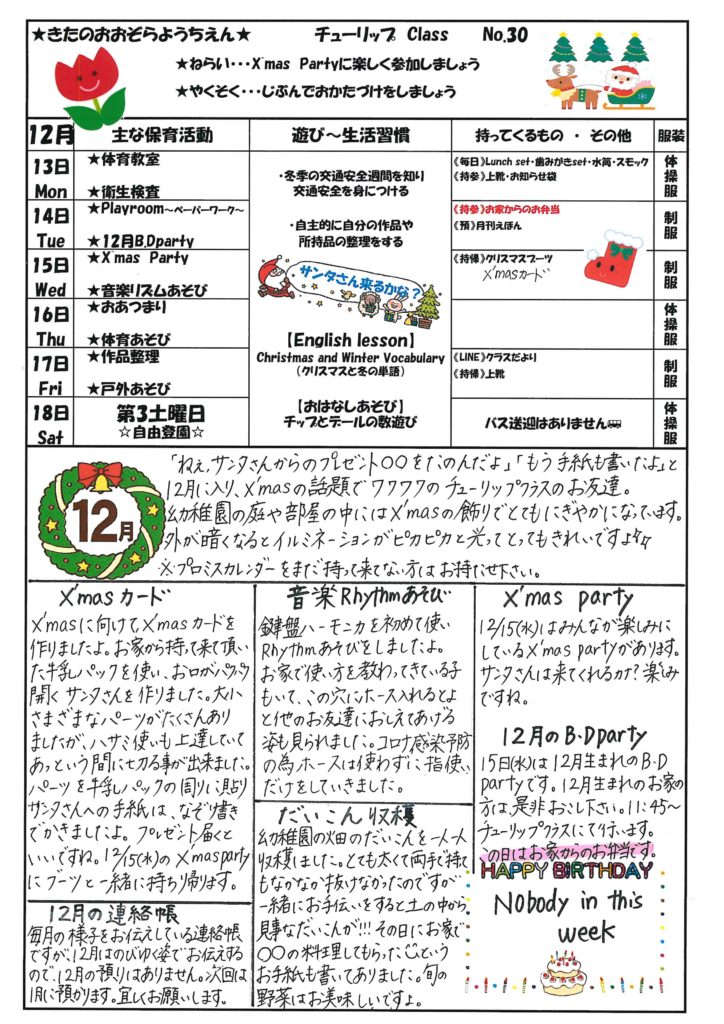 ★きたのおおぞらようちえん★ チューリップ Class No.30
★ねらい・・・X'mas Partyに楽しく参加しましょう
★やくそく・・・じぶんでおかたづけをしましょう
12月 主な保育活動 遊び～生活習慣 持ってくるもの ・ その他 服装
13日 Mon
★体育教室
★衛生検査
《毎日》Lunch set・歯みがきset・水筒・スモック
《持参》上靴・お知らせ袋
体操服
14日 Tue
★Playroom～ペーパーワーク～
★12月B.Dparty
《持参》お家からのお弁当
《預》月刊えほん
制服
15日 Wed
★X'mas Party
★音楽リズムあそび
《持帰》クリスマスブーツ
X'masカード
制服
16日 Thu
★おあつまり
★体育あそび
体操服
17日 Fri
★作品整理
★戸外あそび
《LINE》クラスだより
《持帰》上靴
制服
18日 Sat
第3土曜日
☆自由登園☆
バス送迎はありません
体操服
・冬季の交通安全週間を知り
交通安全を身につける
・自主的に自分の作品や
所持品の整理をする
サンタさん来るかな？
【English lesson】
Christmas and Winter Vocabulary
（クリスマスと冬の単語）
【おはなしあそび】
チップとデールの数遊び
12月
「ねぇ、サンタさんからのプレゼント〇〇をたのんだよ」「もう手紙も書いたよ」と
12月に入り、X'masの話題でワクワクのチューリップクラスのお友達。
幼稚園の庭や部屋の中にはX'masの飾りでとてもにぎやかになっています。
外が暗くなるとイルミネーションがピカピカと光ってとってもきれいですよ
※プロミスカレンダーをまだ持って来てない方はお持たせ下さい。
X'masカード
X'masに向けて、X'masカードを
作りましたよ。お家から持って来て頂い
た牛乳パックを使い、お口がパクパク
開くサンタさんを作りました。大小
さまざまなパーツがたくさんあり
ましたが、ハサミ使いも上達していて
あっという間に切る事が出来ました。
パーツを牛乳パックの周りに貼り
サンタさんへの手紙は、なぞり書き
でかきましたよ。プレゼント届くと
いいですね。12/15(水)のX'masparty
にブーツと一緒に持ち帰ります。
12月の連絡帳
毎月の様子をお伝えしている連絡帳
ですが、12月はのびゆく姿でお伝えする
ので、12月の預りはありません。次回は
1月に預かります。宜しくお願いします。
音楽Rhythmあそび
鍵盤ハーモニカを初めて使い
Rhythmあそびをしましたよ。
お家で使い方を教わってきている子
もいて、この穴にホース入れるとよ
と他のお友達におしえてあげる
姿も見られました。コロナ感染予防
の為ホースは使わずに指使い
だけをしていきました。
だいこん収穫
幼稚園の畑のだいこんを一人一人
収穫しました。とても太くて両手で持て
もなかなか抜けなかったのですが
一緒にお手伝いをすると土の中から
見事なだいこんが!!! その日にお家で
〇〇の料理してもらったという
お手紙も書いてありました。旬の
野菜はお美味しいですよ。
X'mas party
12/15(水)はみんなが楽しみに
しているX'mas partyがあります。
サンタさんは来てくれるかな?楽しみ
ですね。
12月のB・Dparty
15日(水)は12月生まれのB・D
partyです。12月生まれのお家の
方は是非お越し下さい。11:45～
チューリップクラスにて行います。
この日はお家からのお弁当です。
HAPPY BIRTHDAY
Nobody in this
week